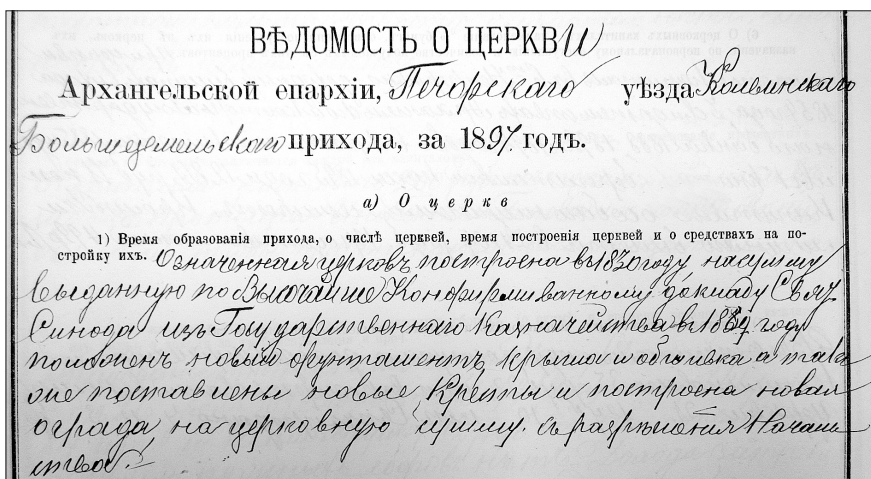 ВѢДОМОСТЬ О ЦЕРКВИ
Архангельской епархіи, Печорскаго уѣзда Колвинскаго
Большеземельскаго прихода, за 1897 годъ.
а) О церкв
1) Время образованія прихода, о числѣ церквей, время построенія церквей и о средствахъ на по-
стройку ихъ. Означенная церковь построена въ 1830 году на сумму
выданную по Высочайше Конфирмиванному докладу Свят.
Синода изъ Государственнаго Казначейства въ 1889 году
положенъ новый фунтаментъ, крыша и обшивка а так
же поставлены новые Кресты и построена новая
ограда на церковную сумму. съ разрѣшенія Началь
ства.